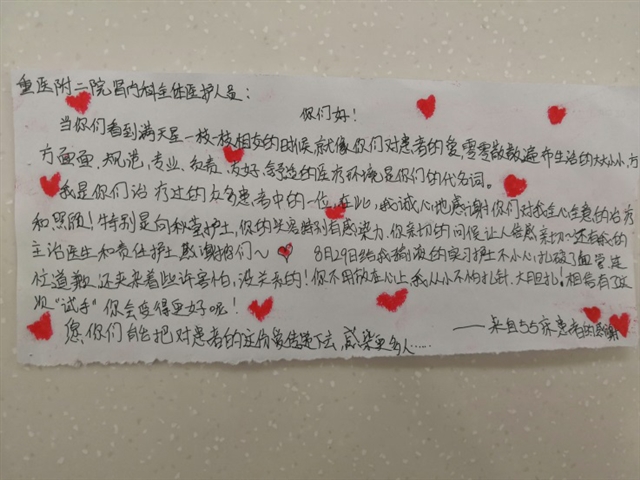 重医附二院肾内科全体医护人员：
你们好！
当你们看到满天星一枝一枝相交的时候，就像你们对患者的爱，零零散散遍布生活的大大小小，方
方面面。规范，专业，负责，友好，舒适的医疗环境是你们的代名词。
我是你们治疗过的众多患者中的一位，在此，我诚心地感谢你们对我全心全意的治疗
和照顾！特别是向科莹护士，你的笑容特别有感染力，你亲切的问候让人倍感亲切～还有我的
主治医生和责任护士感谢你们～ 8月29日给我输液的实习护士不小心，扎破了血管，连
忙道歉，还夹杂着些许害怕，没关系的！你不用放在心上，我从小不怕扎针，大胆扎！相信有了这
次“试手”你会变得更好呢！
愿你们能把对患者的这份爱传递下去，感染更多人……
——来自55床患者的感谢